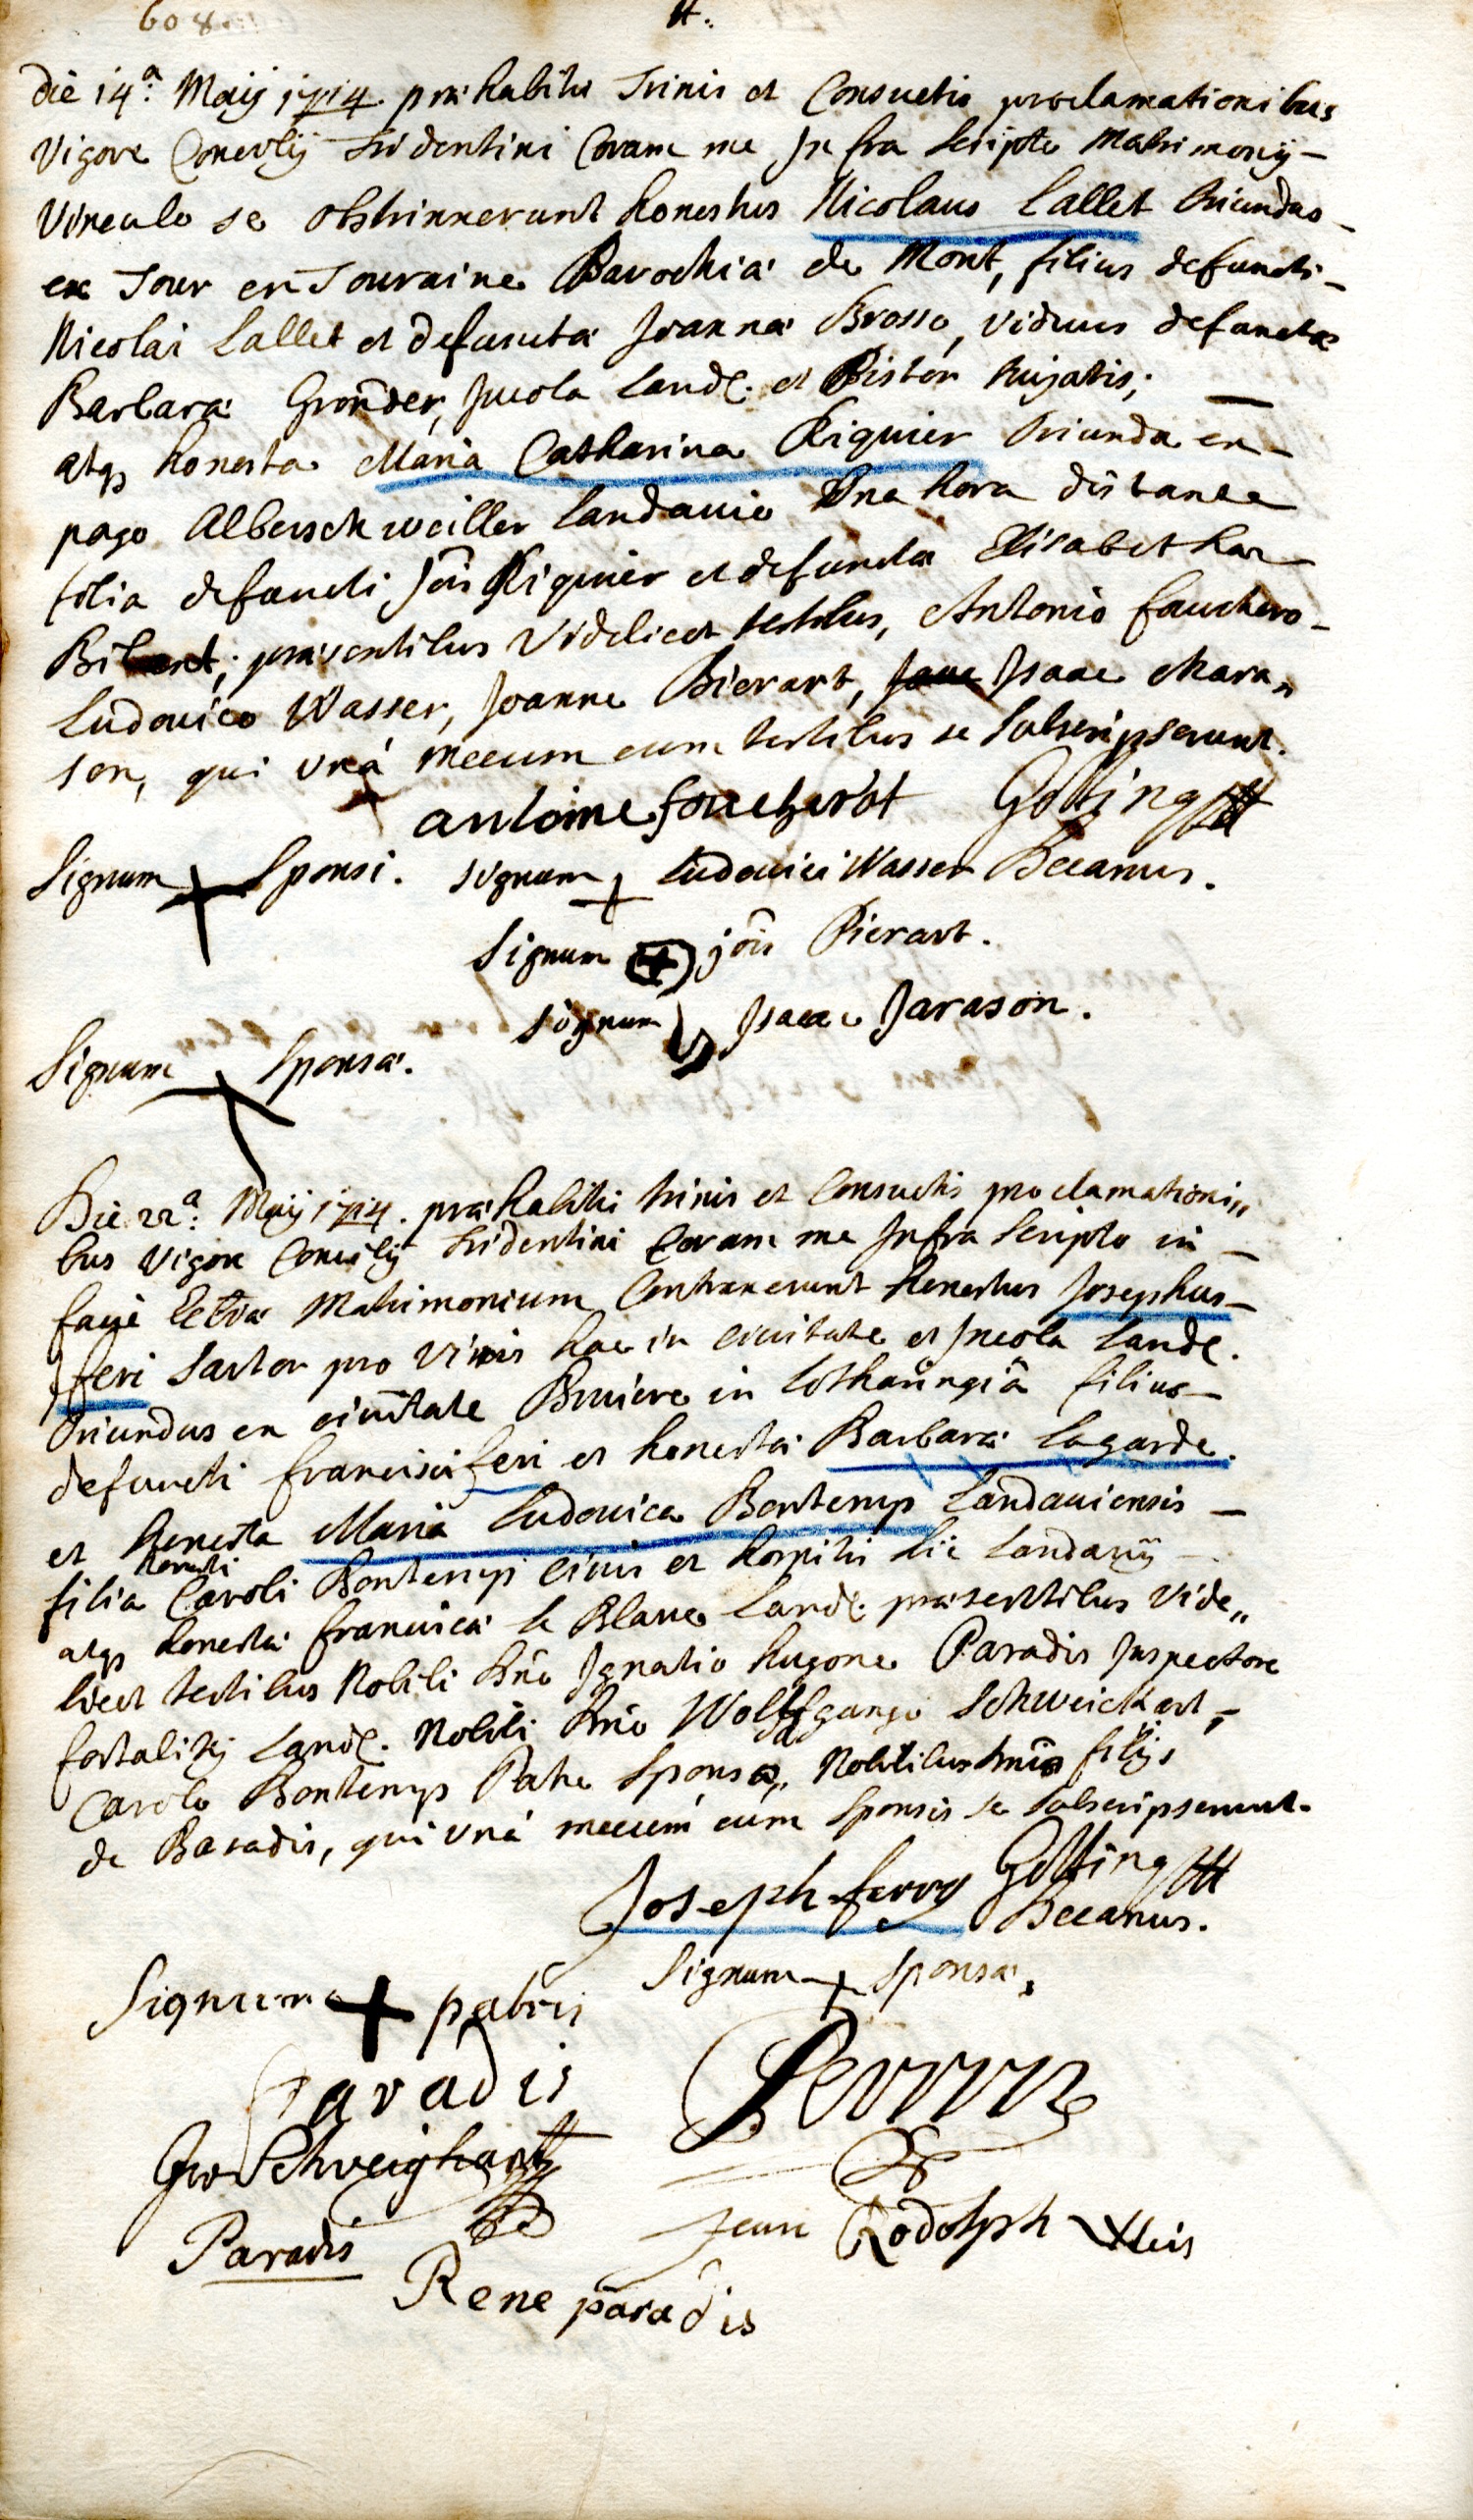 608. 4.
die 14.a Maij 1714 præhabitis Trinis et Consuetis proclamationibus
vigore Concilij Tridentini Coram me Infra Scripto Matrimonij
Vinculo se obstrinxerunt honestus Nicolaus Lallet Oriundus
ex Tour en Touraine Parochia de Mont, filius defuncti
Nicolai Lallet et defuncta Joanna Brosse, viduus defuncta
Barbara Gronder, Incola Land. et Pistor hujatis;
atq honesta Maria Catharina Riquier Oriunda ex
pago Alberschweiller Landavio una hora distante
filia defuncti Jois Riquier et defuncta Elisabetha
præsentibus Videlicet testibus, Antonio fouchero
Ludovico Wasser, Joanne Pierart, Isaac Mara„
son, qui unà mecum cum testibus se Subscripserunt.
antoine foucherot Gotting
Signum Sponsi. signum Ludovici Wasser Decanus.
Signum jois Pierart.
signum Isaac Jarason.
Signum Sponsa.
Die 22.a Maij 1714. præhabitis trinis et Consuetis proclamationi„
bus vigore Concilij Tridentini Coram me Infra Scripto in
facie Eccliæ Matrimonium Contraxerunt honestus Josephus
feri Sartor pro viris hac in civitate et Incola Land.
Oriundus ex civitate Bruiere in Lotharingiâ filius
defuncti francisci feri et honesta Barbara Lagarde.
et honesta Maria Ludovica Bontemp Landaviensis
honesti
filia Caroli Bontemps civis et hospitis hic Landavij
atq honesta francisca le Blanc Land. præsentibus Vide„
licet testibus Nobili Dno Ignatio hugone Paradis Inspectore
fortalitij Land. Nobili Dno Wolffgango Schweickart,
Carolo Bontemps Patre Sponsæ, Nobilibus Dnis filijs
de Paradis, qui unà mecum cum Sponsis se Subscripserunt.
Joseph ferry Gotting
Decanus.
Signum patris Signum Sponsa.
Paradis
Schveighart
Paradis Jean Rodolph
Rene paradis